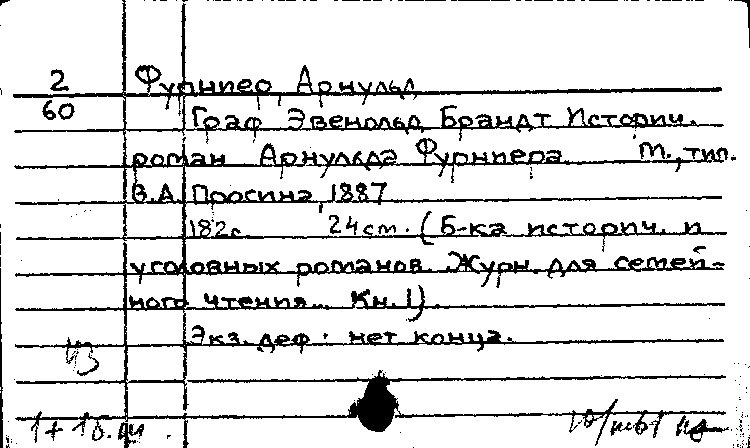 2 Фурнпер, Арнульд
60 Граф Эвенольд Брандт Историч.
роман Арнульда Фурнпера М., тип.
В.А. Просина, 1887
182с. 24см. (Б-ка историч. и
уголовных романов. Журн. для семей-
ного чтения... Кн. 1)
Экз. деф. нет конца.